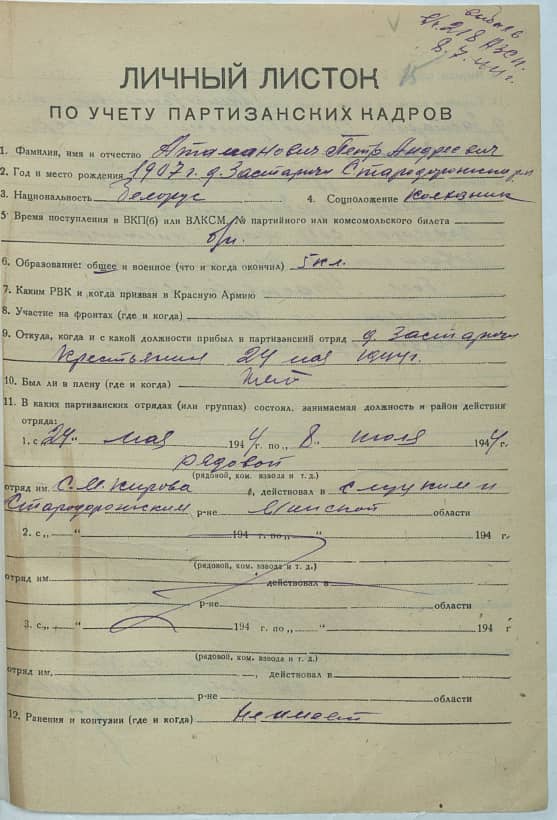 выбыл в
218 АЗСП.
8.7.44г.
15
ЛИЧНЫЙ ЛИСТОК
ПО УЧЕТУ ПАРТИЗАНСКИХ КАДРОВ
1. Фамилия, имя и отчество Атаманович Петр Андреевич
2. Год и место рождения 1907 г. д. Застаричи Стародорожский
3. Национальность белорус 4. Соцположение колхозник
5 Время поступления в ВКП(б) или ВЛКСМ, № партийного или комсомольского билета
б/п.
6. Образование: общее и военное (что и когда окончил) 5 кл.
7. Каким РВК и когда призван в Красную Армию
8. Участие на фронтах (где и когда)
9. Откуда, когда и с какой должности прибыл в партизанский отряд д. Застаричи
крестьянин 24 мая 1944г.
10. Был ли в плену (где и когда) Нет
11. В каких партизанских отрядах (или группах) состоял, занимаемая должность и район действия
отряда:
1. с „24“ мая 1944 г. по „8“ июля 1944 г.
рядовой
(рядовой, ком. взвода и т. д.)
отряд им. С.М. Кирова, действовал в Слуцким и
Стародорожским р-не Минской области
2. с „ “ 194 г. по „ “ 194 г.
(рядовой, ком. взвода и т. д.)
отряд им. действовал в
р-не области
3. с „ “ 194 г. по „ “ 194 г
(рядовой, ком. взвода и т. д.)
отряд им. , действовал в
р-не области
12. Ранения и контузии (где и когда) не имеет